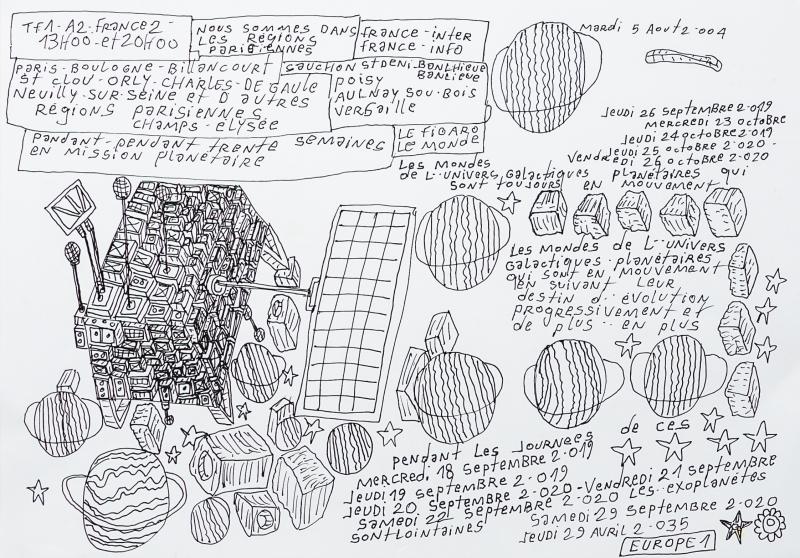 TF1-A2-FRANCE2-
13H00-et20H00
NOUS SOMMES DANS
LES RÉGIONS
PARISIENNES
FRANCE-inter
FRANCE-INFO
PARIS-BOULOGNE-BiLLANCOURT
St CLOU-ORLY-CHARLES-DE GAULE
NEUILLY-SUR-SEINE et D'AUTRES
RÉGIONS PARISIENNES
CHAMPS-ELYSÉE
CAUCHON St DENI-BANLHIEUE
BANLIEUE
POISY
AULNAY SOU-BOIS
VERSAILLE
PANDANT-PENDANT TRENTE SEMAINES
EN MISSION PLANÉTAIRE
LE FIGARO
LE MONDE
Mardi 5 Aout 2-004
Jeudi 26 Septembre 2-019
Mercredi 23 octobre
Jeudi 24 octobre 2-019
Jeudi 25 octobre 2-020-
Vendredi 26 octobre 2-020
Les Mondes
de L--univers Galactiques planétaires qui
sont toujours en mouvement
Les Mondes de L--univers
Galactiques-planétaires
qui sont en mouvement
en suivant Leur
destin d--évolution
progressivement et
de plus--en plus
de ces
pendant Les Journees
Mercredi 18 Septembre 2-019
Jeudi 19 Septembre 2-019
Jeudi 20 Septembre 2-020-Vendredi 21 Septembre
Samedi 22 Septembre 2-020 Les exoplanètes
sont Lointaines
Samedi 29 Septembre 2-020
Jeudi 29 Avril 2-035
EUROPE 1